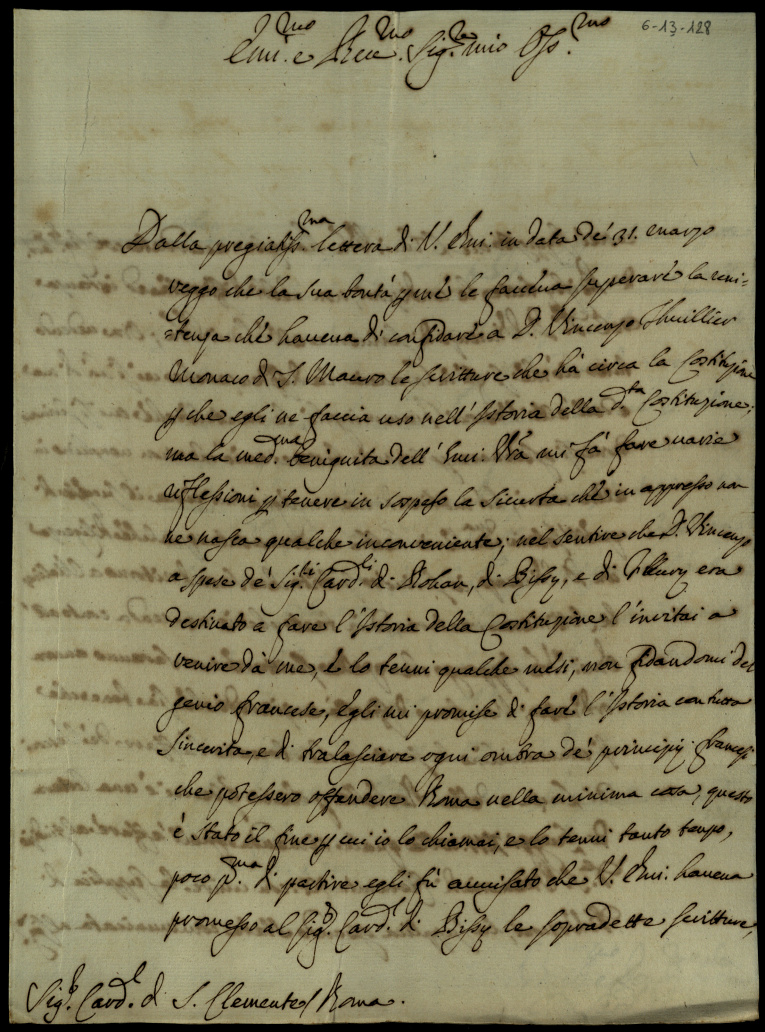 6-13-128
Em.mo e Rev.mo Sig.re mio Oss.mo
Dalla pregiatiss.ma lettera di V. Em. in data de' 31. marzo
veggo che la sua bontà le faceva superare la reni=
=tenza che haveva di confidare a D. Vincenzo Thuillier
Monaco di S. Mauro le scritture che hà circa la Costituzione
p che egli ne faccia uso nell'Istoria della d.ta Costituzione;
ma la med.ma benignità dell'Em. Vrã mi fà fare varie
riflessioni p tenere in sospeso la sicurtà che in appresso non
ne nasca qualche inconveniente; nel sentire che D. Vincenzo
a spese de' Sig.ri Card.li di Rohan, di Bissy, e di Fleury era
destinato a fare l'Istoria della Costituzione l'invitai a
venire dà me, e lo tenni qualche mesi, non fidandomi del
genio francese, egli mi promise di fare l'Istoria con tutta
sincerità, e di tralasciare ogni ombra de' principij francesi
che potessero offendere Roma nella minima cosa, questo
è stato il fine p cui io lo chiamai, e lo tenni tanto tempo,
poco p.ma di partire egli fù avvisato che V. Em. haveva
promesso al Sig.r Card.l di Bissy le sopradette scritture,
Sig.r Card.l di S. Clemente / Roma.